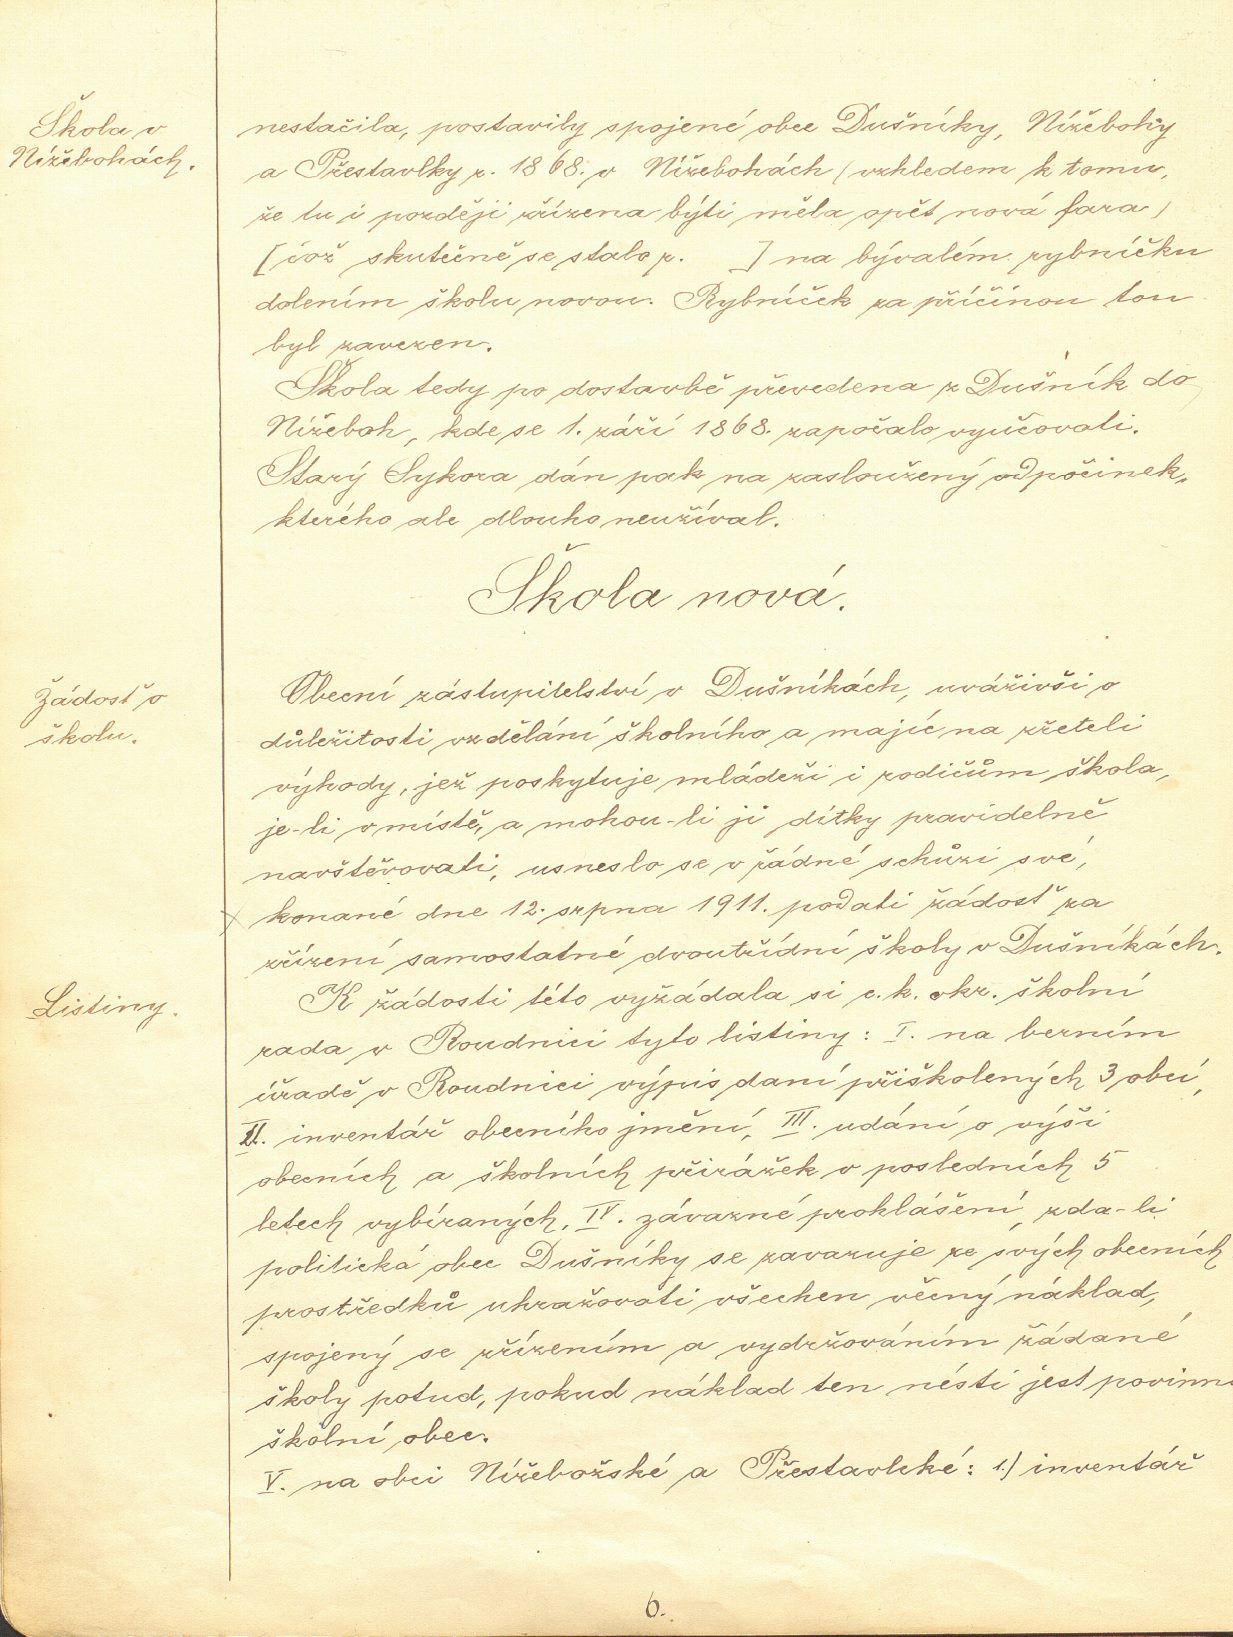 Škola v
Nížebohách.
nestačila, postavily spojené obce Dušníky, Nížebohy
a Přestavlky r. 1868. v Nížebohách (vzhledem k tomu,
že tu i později zřízena býti měla opět nová fara)
[což skutečně se stalo r. ] na bývalém rybníčku
dolením školu novou. Rybníček za příčinou tou
byl zavezen.
Škola tedy po dostavbě převedena z Dušník do
Nížeboh, kde se 1. září 1868. započalo vyučovati.
Starý Sykora dán pak na zasloužený odpočinek,
kterého ale dlouho neužíval.
Škola nová.
Žádosť o
školu.
Obecní zástupitelství v Dušníkách, uváživši o
důležitosti vzdělání školního a majíc na zřeteli
výhody, jež poskytuje mládeži i rodičům škola,
je-li v místě, a mohou-li ji dítky pravidelně
navštěvovati, usneslo se v řádné schůzi své,
konané dne 12. srpna 1911. podati žádosť za
zřízení samostatné dvoutřídní školy v Dušníkách.
Listiny.
K žádosti této vyžádala si c. k. okr. školní
rada v Roudnici tyto listiny: I. na berním
úřadě v Roudnici výpis daní přiškolených 3 obcí,
II. inventář obecního jmění, III. udání o výši
obecních a školních přirážek v posledních 5
letech vybíraných, IV. závazné prohlášení, zda-li
politická obec Dušníky se zavazuje ze svých obecních
prostředků uhražovati všechen věcný náklad,
spojený se zřízením a vydržováním žádané
školy potud, pokud náklad ten nésti jest povinna
školní obec.
V. na obci Nížebožské a Přestavlcké: 1.) inventář
6.